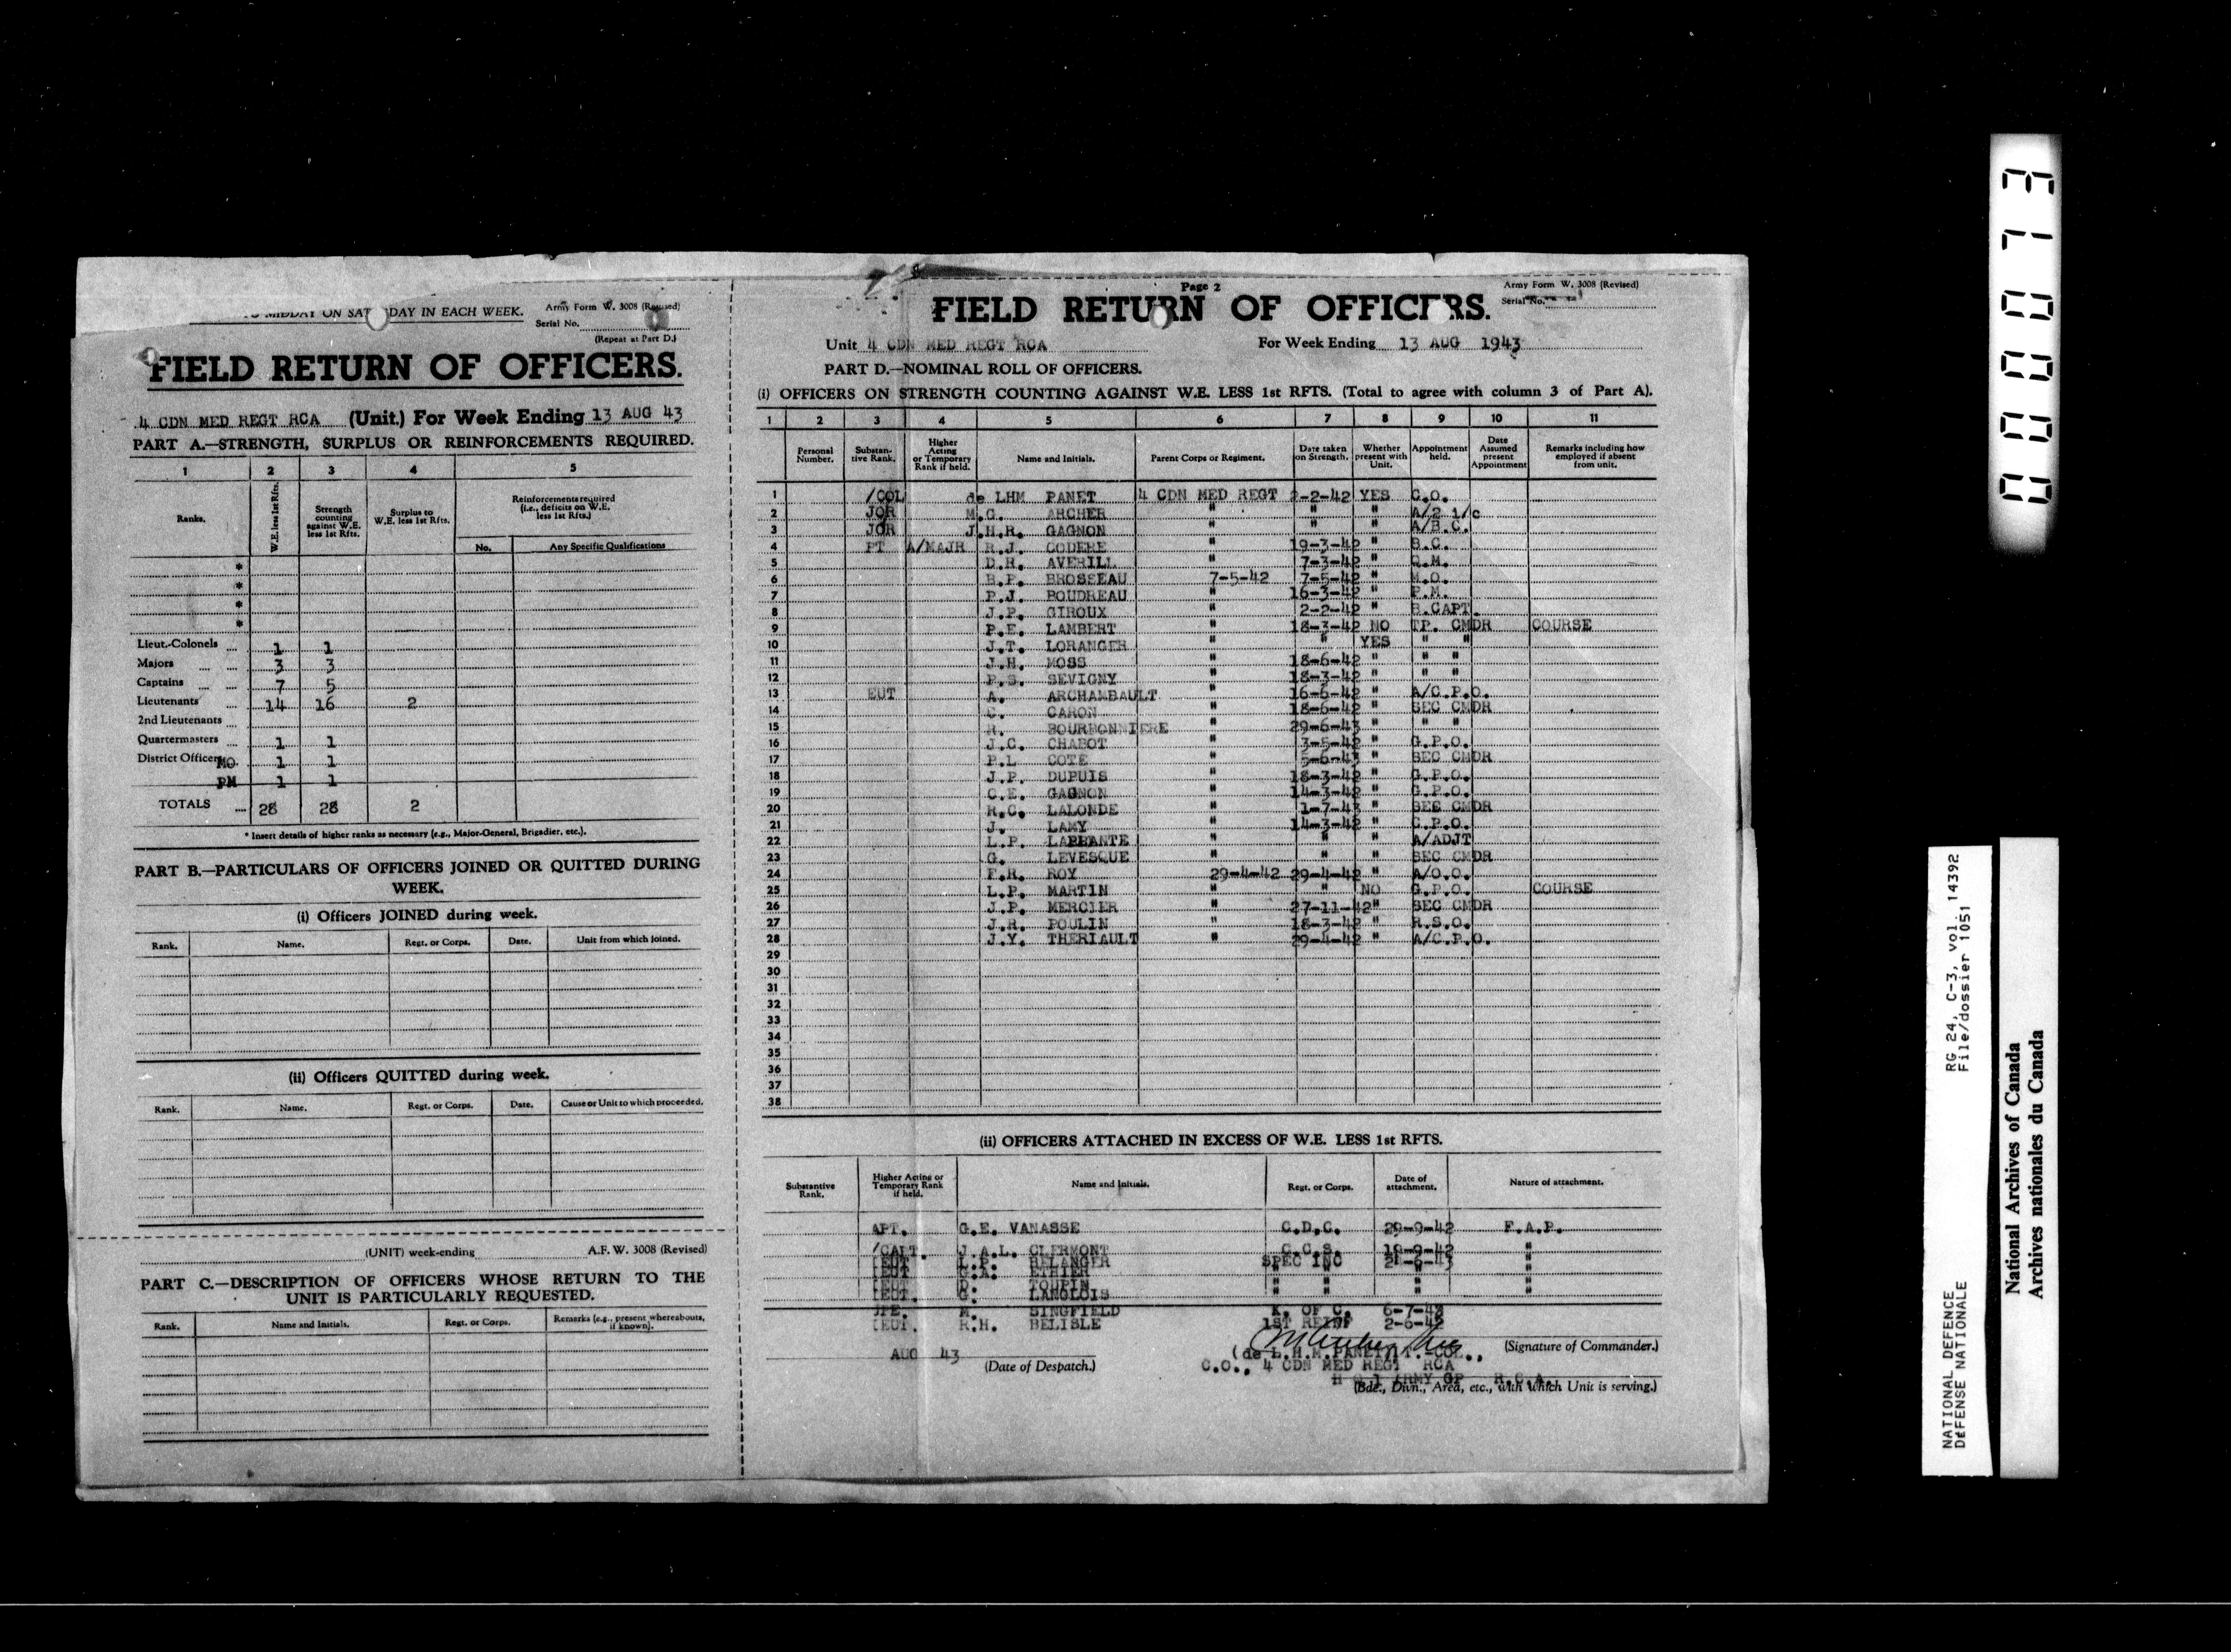 TO MIDDAY ON SAT DAY IN EACH WEEK.
Army Form W. 3008 (Revised)
Serial No.
(Repeat at Part D.)
FIELD RETURN OF OFFICERS.
4 CDN MED REGT RCA (Unit.) For Week Ending 13 AUG 43
PART A.—STRENGTH, SURPLUS OR REINFORCEMENTS REQUIRED.
1 2 3 4 5
Ranks. W.E. less 1st Rfts. Strength counting against W.E. less 1st Rfts. Surplus to W.E. less 1st Rfts. Reinforcements required (i.e., deficits on W.E. less 1st Rfts.)
No. Any Specific Qualifications
*
*
*
*
Lieut.-Colonels 1 1
Majors 3 3
Captains 7 5
Lieutenants 14 16 2
2nd Lieutenants
Quartermasters 1 1
District Officers MO. 1 1
PM 1 1
TOTALS 28 28 2
* Insert details of higher ranks as necessary (e.g., Major-General, Brigadier, etc.).
PART B.—PARTICULARS OF OFFICERS JOINED OR QUITTED DURING
WEEK.
(i) Officers JOINED during week.
Rank. Name. Regt. or Corps. Date. Unit from which joined.
(ii) Officers QUITTED during week.
Rank. Name. Regt. or Corps. Date. Cause or Unit to which proceeded.
(UNIT) week-ending A.F. W. 3008 (Revised)
PART C.—DESCRIPTION OF OFFICERS WHOSE RETURN TO THE
UNIT IS PARTICULARLY REQUESTED.
Rank. Name and Initials. Regt. or Corps. Remarks (e.g., present whereabouts, if known).
Page 2
Army Form W. 3008 (Revised)
Serial No.
FIELD RETURN OF OFFICERS.
Unit 4 CDN MED REGT RCA For Week Ending 13 AUG 1943
PART D.—NOMINAL ROLL OF OFFICERS.
(i) OFFICERS ON STRENGTH COUNTING AGAINST W.E. LESS 1st RFTS. (Total to agree with column 3 of Part A).
1 2 3 4 5 6 7 8 9 10 11
Personal Number. Substantive Rank. Higher Acting or Temporary Rank if held. Name and Initials. Parent Corps or Regiment. Date taken on Strength. Whether present with Unit. Appointment held. Date Assumed present Appointment Remarks including how employed if absent from unit.
1 /COL de LHM PANET 4 CDN MED REGT 2-2-42 YES C.O.
2 JOR M.G. ARCHER " " " A/2 i/c
3 JOR J.H.R. GAGNON " " " A/B.C.
4 PT A/MAJR R.J. CODERE " 19-3-42 " B.C.
5 D.R. AVERILL " 7-3-42 " Q.M.
6 B.P. BROSSEAU 7-5-42 7-5-42 " M.O.
7 P.J. BOUDREAU " 16-3-42 " P.M.
8 J.P. GIROUX " 2-2-42 " B.CAPT.
9 P.E. LAMBERT " 18-3-42 NO TP. CMDR COURSE
10 J.T. LORANGER " " YES " "
11 J.H. MOSS " 18-6-42 " " "
12 P.S. SEVIGNY " 18-3-42 " " "
13 EUT A. ARCHAMBAULT " 16-6-42 " A/C.P.O.
14 CARON " 18-6-42 " SEC CMDR
15 R. BOURBONNIERE " 29-6-43 " " "
16 J.C. CHABOT " 3-5-42 " G.P.O.
17 P.L COTE " 5-6-43 " SEC CMDR
18 J.P. DUPUIS " 18-3-42 " G.P.O.
19 C.E. GAGNON " 14-3-42 " G.P.O.
20 R.C. LALONDE " 1-7-43 " SEC CMDR
21 J. LAMY " 14-3-42 " C.P.O.
22 L.P. LAPLANTE " " " A/ADJT
23 G. LEVESQUE " " " SEC CMDR
24 F.R. ROY 29-4-42 29-4-42 " A/O.O.
25 L.P. MARTIN " " NO G.P.O. COURSE
26 J.P. MERCIER " 27-11-42 " SEC CMDR
27 J.R. POULIN " 18-3-42 " R.S.O.
28 J.Y. THERIAULT " 29-4-42 " A/C.P.O.
29
30
31
32
33
34
35
36
37
38
(ii) OFFICERS ATTACHED IN EXCESS OF W.E. LESS 1st RFTS.
Substantive Rank. Higher Acting or Temporary Rank if held. Name and Initials. Regt. or Corps. Date of attachment. Nature of attachment.
APT. G.E. VANASSE C.D.C. 29-9-42 F.A.P.
/CAPT. J.A.L. CLERMONT C.C.S. 18-9-42 "
IEUT L.P. BELANGER SPEC INC 21-6-43 "
IEUT G.A. ETHIER " " " "
TOUPIN " " " "
IEUT. G. LANGLOIS
JPE. M. SINGFIELD K. OF C. 6-7-43
IEUT. R.H. BELISLE 1ST REINF 2-6-42
AUG 43 (Date of Despatch.)
(de L.H.M.PANET)LT.-COL., (Signature of Commander.)
C.O., 4 CDN MED REGT RCA
H Q 1 ARMY GP R.C.A.
(Bde., Divn., Area, etc., with which Unit is serving.)
000073
NATIONAL DEFENCE RG 24, C-3, vol. 14392
DÉFENSE NATIONALE File/dossier 1051
National Archives of Canada
Archives nationales du Canada